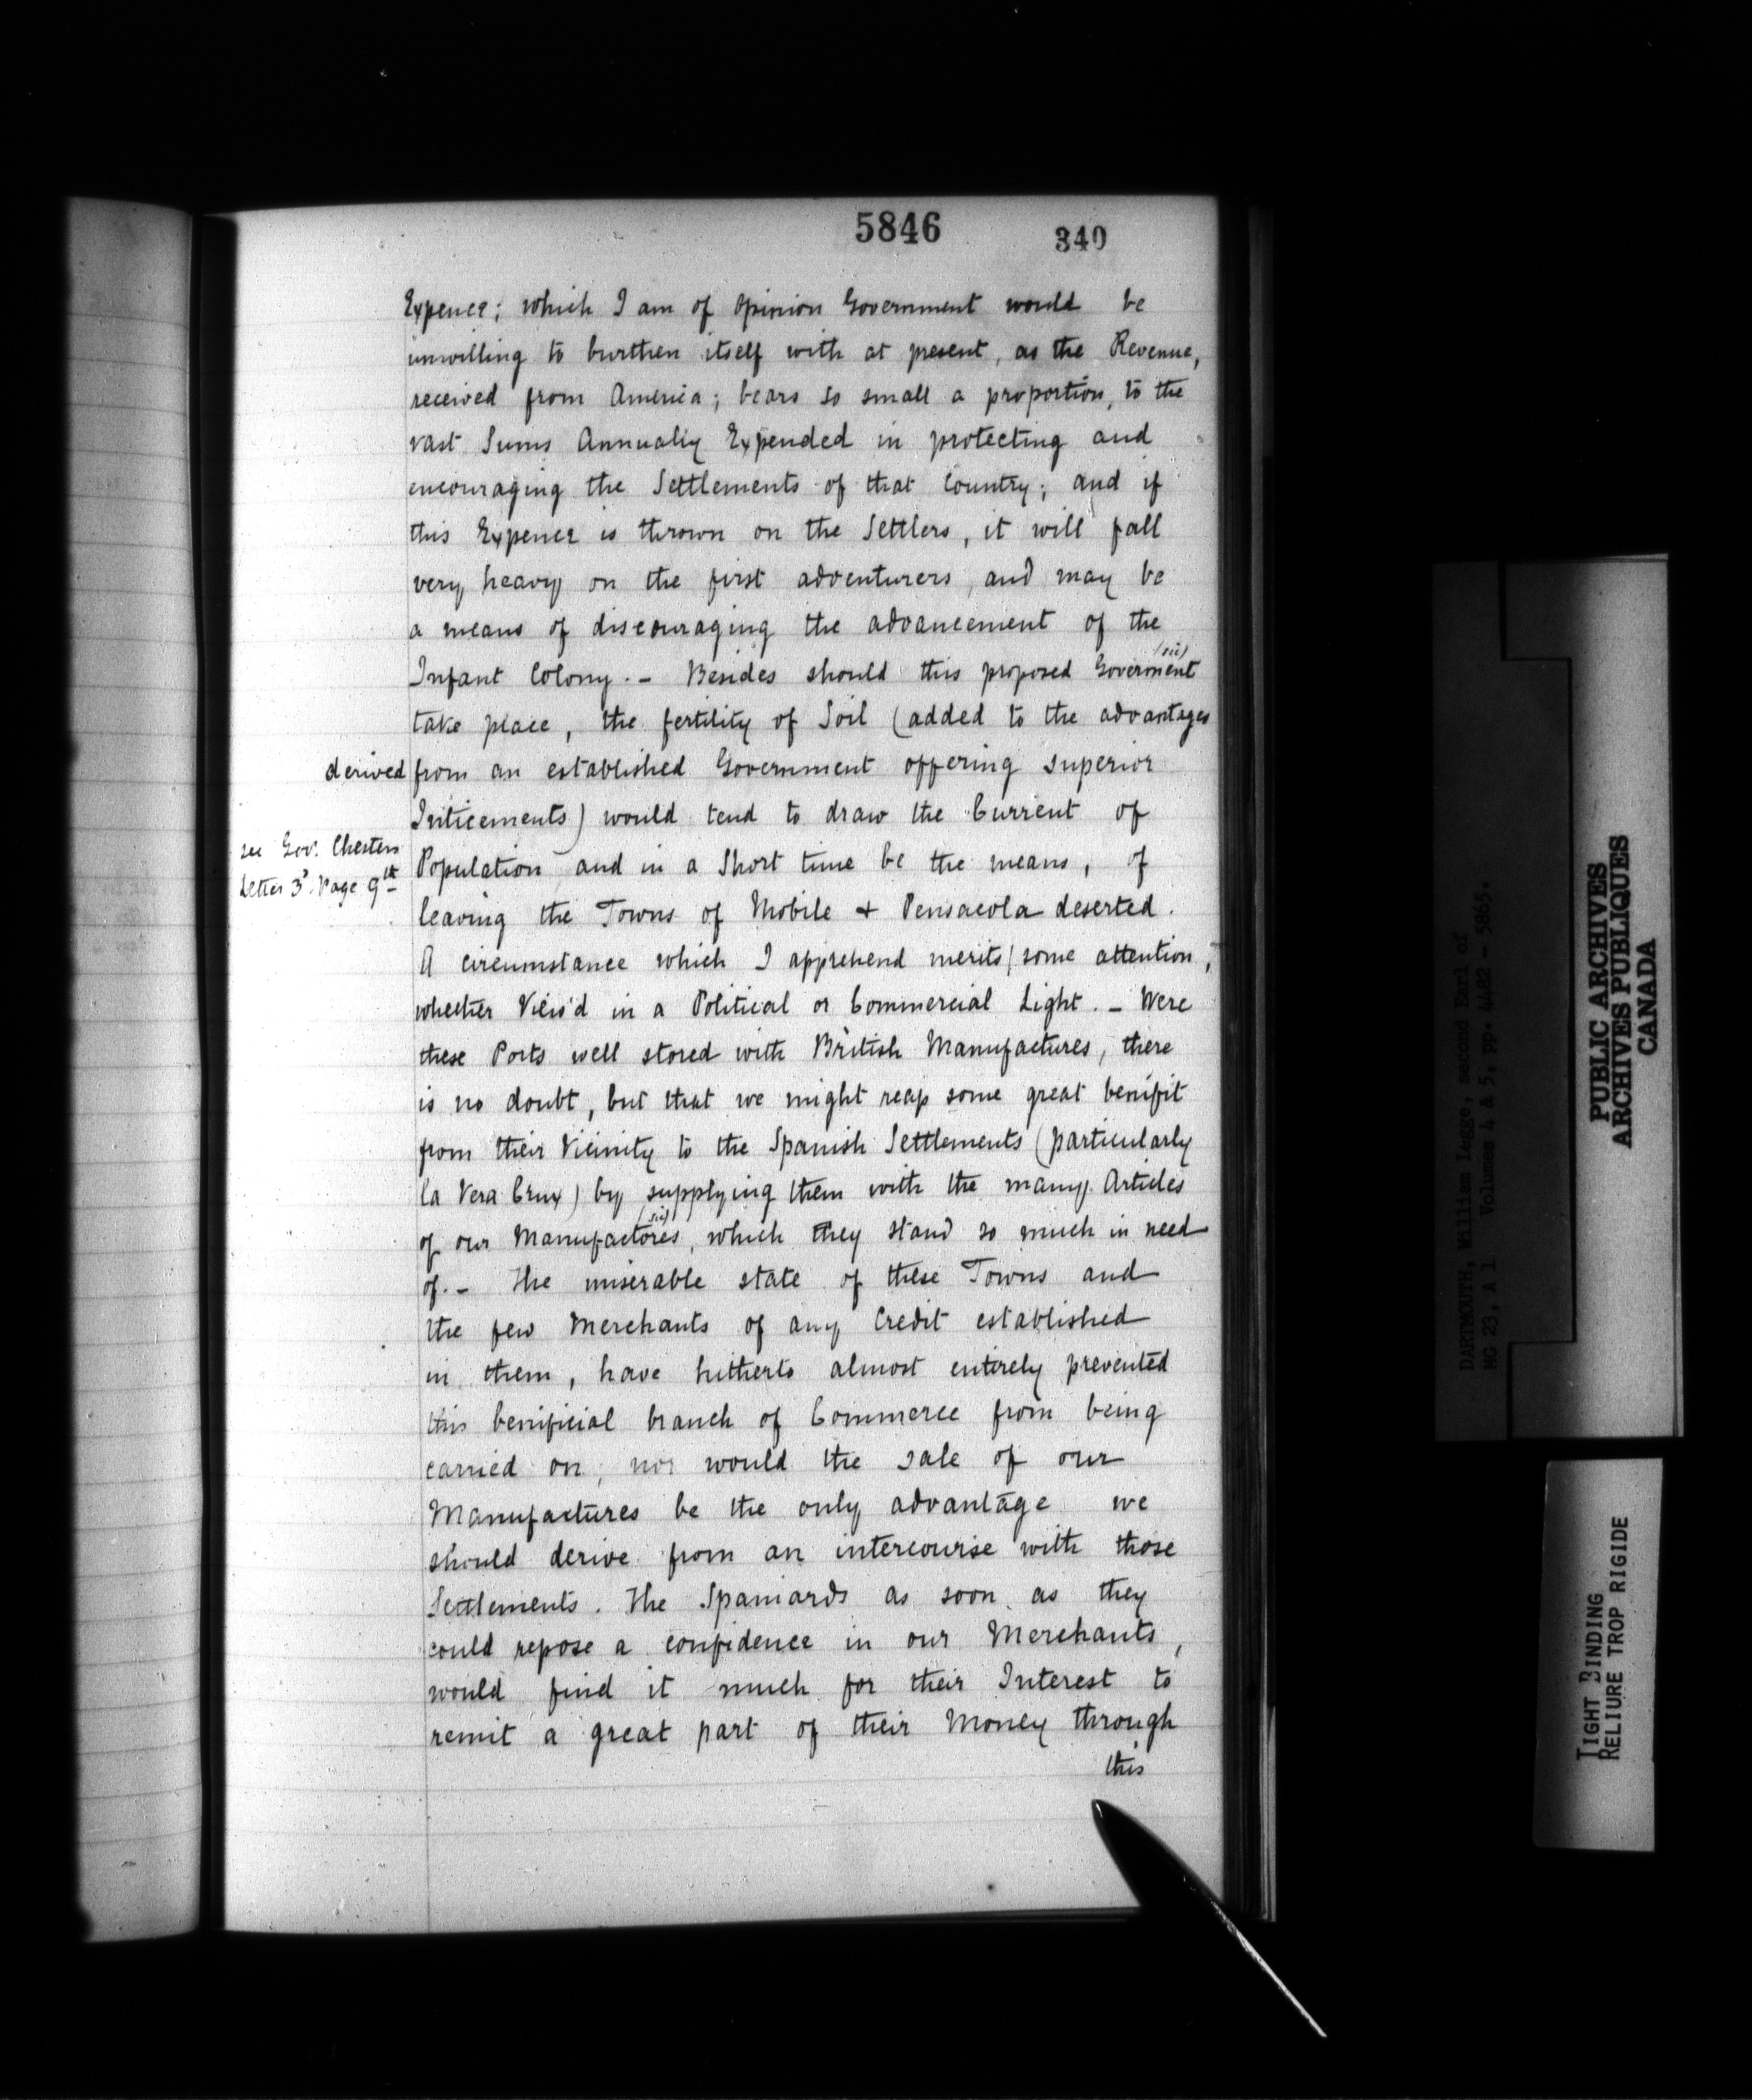 5846
340
Expence; which I am of Opinion Government would be
unwilling to burthen itself with at present, as the Revenue,
received from America; bears so small a proportion, to the
vast Sums Annually Expended in protecting and
encouraging the Settlements of that Country; and if
this Expence is thrown on the Settlers, it will fall
very heavy on the first adventurers, and may be
a means of discouraging the advancement of the
Infant Colony. - Besides should this proposed Goverment (sic)
take place, the fertility of Soil (added to the advantages
derived from an established Government offering superior
Inticements) would tend to draw the Current of
see Gov. Chesters
Letter 3d. Page 9th
Population and in a Short time be the means, of
leaving the Towns of Mobile + Pensacola deserted.
A circumstance which I apprehend merits some attention,
whether View'd in a Political or Commercial Light. - Were
these Ports well stored with British Manufactures, there
is no doubt, but that we might reap some great benifit
from their Vicinity to the Spanish Settlements (particularly
la Vera Crux) by supplying them with the many Articles
of our Manufactores (sic), which they stand so much in need
of. - The miserable state of these Towns and
the few Merchants of any Credit established
in them, have hitherto almost entirely prevented
this benificial branch of Commerce from being
carried on, nor would the sale of our
Manufactures be the only advantage we
should derive from an intercourse with those
Settlements. The Spaniards as soon as they
could repose a confidence in our Merchants,
would find it much for their Interest to
remit a great part of their Money through
this
DARTMOUTH, William Legge, second Earl of
MG 23, A 1 Volumes 4 & 5, pp. 4482 - 5865.
PUBLIC ARCHIVES
ARCHIVES PUBLIQUES
CANADA
TIGHT BINDING
RELIURE TROP RIGIDE